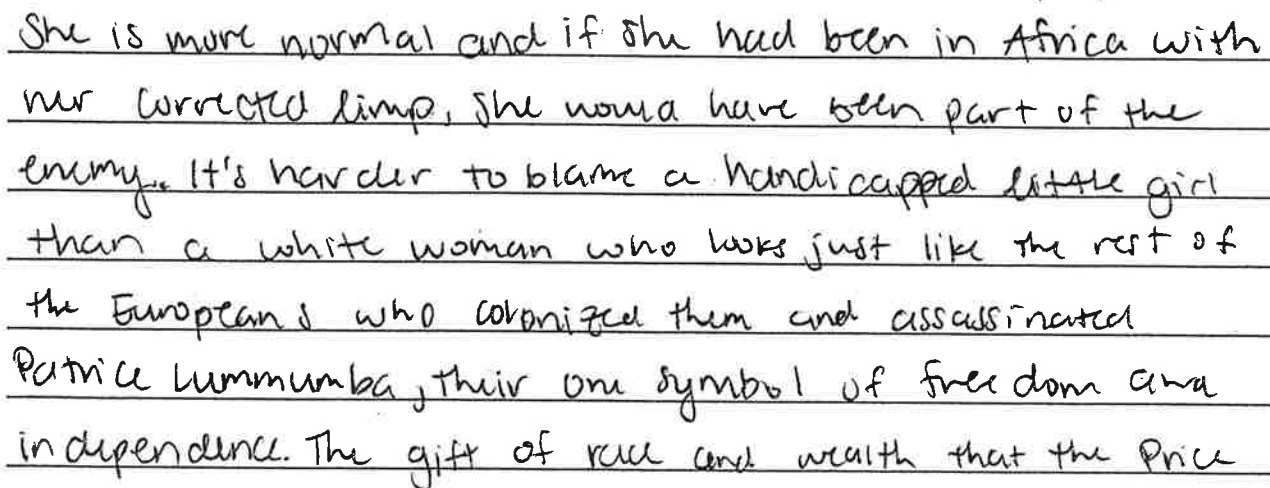 She is more normal and if she had been in Africa with
her corrected limp, she would have been part of the
enemy. It's harder to blame a handicapped little girl
than a white woman who looks just like the rest of
the Europeans who colonized them and assassinated
Patrice Lummumba, their one symbol of freedom and
independence. The gift of race and wealth that the Price